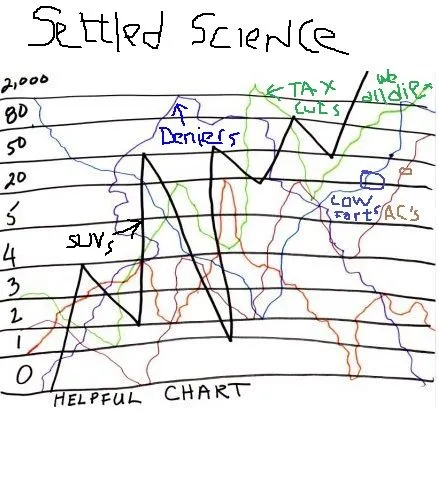 Settled Science
2,000
80
50
20
5
4
3
2
1
0
← TAX
CUTS
we
all die
Deniers
SUVs
COW
farts
AC's
HELPFUL CHART